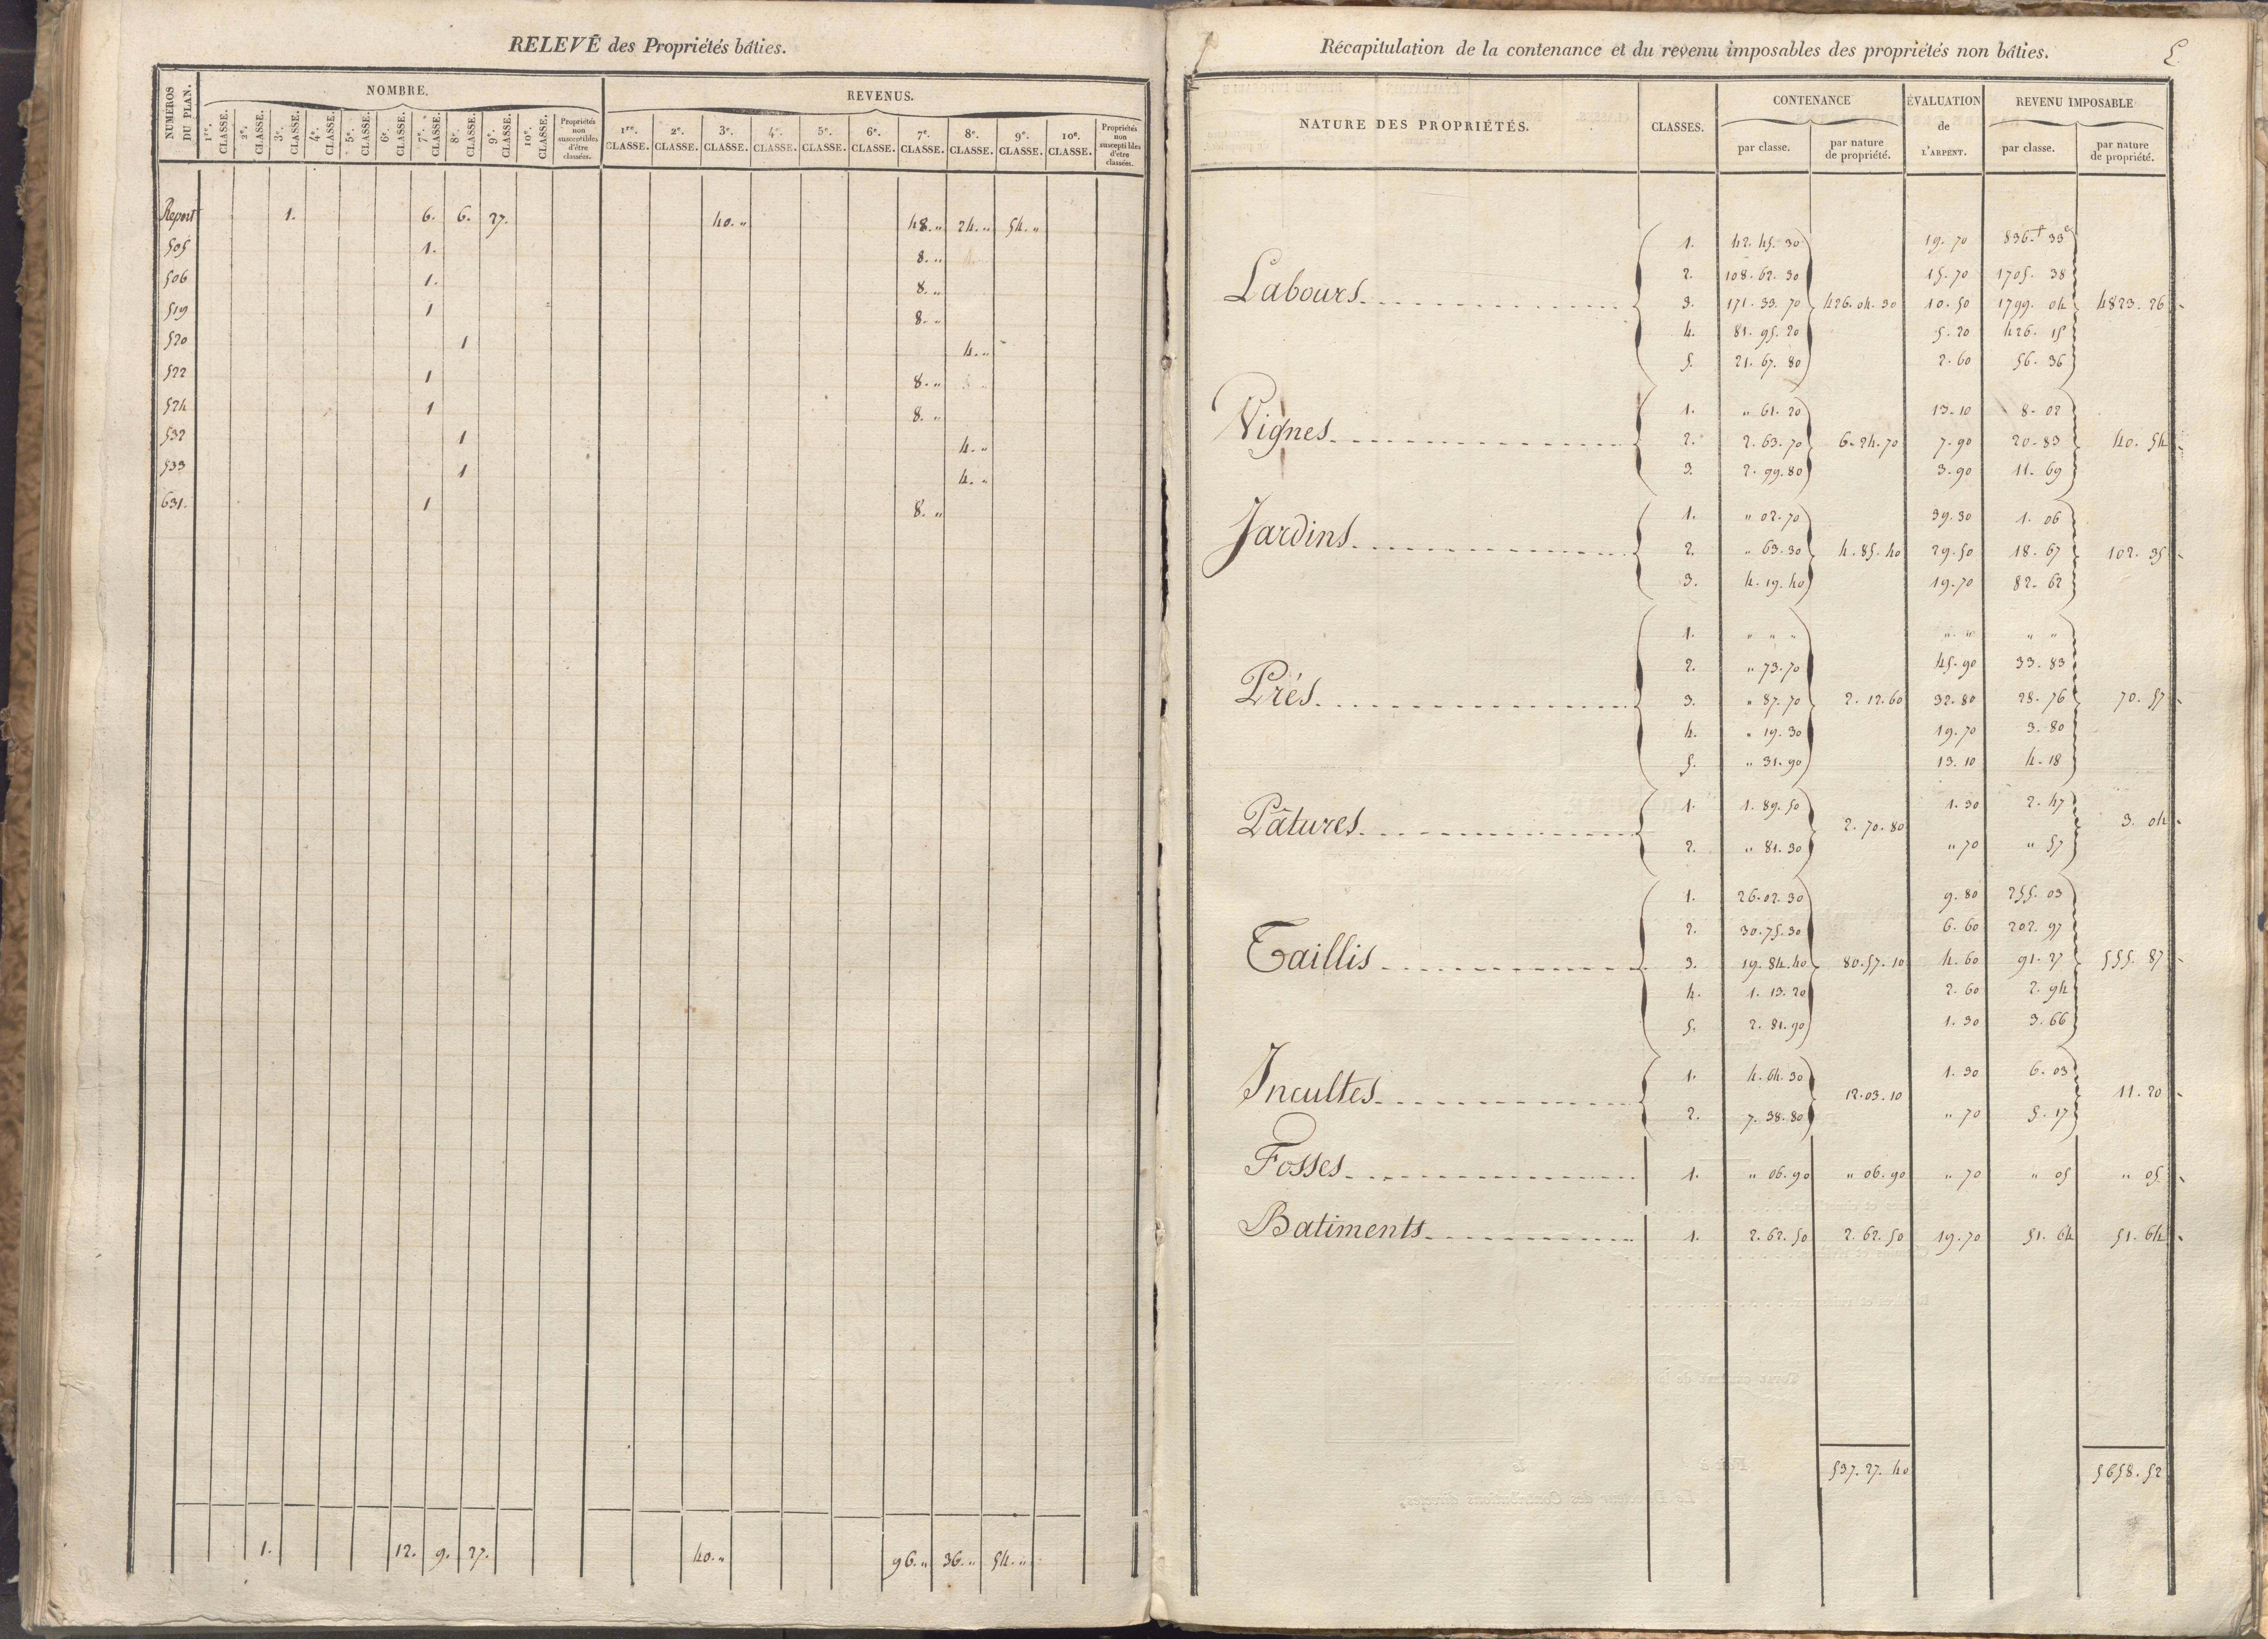 RELEVÉ des Propriétés bâties.
NUMÉROS DU PLAN. NOMBRE. REVENUS.
1re. CLASSE. 2e. CLASSE. 3e. CLASSE. 4e. CLASSE. 5e. CLASSE. 6e. CLASSE. 7e. CLASSE. 8e. CLASSE. 9e. CLASSE. 10e. CLASSE. Propriétés non susceptibles d'être classées. 1re. CLASSE. 2e. CLASSE. 3e. CLASSE. 4e. CLASSE. 5e. CLASSE. 6e. CLASSE. 7e. CLASSE. 8e. CLASSE. 9e. CLASSE. 10e. CLASSE. Propriétés non susceptibles d'être classées.
Report 1. 6. 6. 27. 40. " 48. " 24. " 54. "
505 1. 8. "
506 1. 8. "
519 1 8. "
520 1 4. "
522 1 8. "
524 1 8. "
532 1 4. "
533 1 4. "
631. 1 8. "
1. 12. 9. 27. 40. " 96. " 36. " 54. "
Récapitulation de la contenance et du revenu imposables des propriétés non bâties.
5
NATURE DES PROPRIÉTÉS. CLASSES. CONTENANCE ÉVALUATION de L'ARPENT. REVENU IMPOSABLE
par classe. par nature de propriété. par classe. par nature de propriété.
1. 42. 45. 30 19. 70 836.f 33c
2. 108. 62. 30 15. 70 1705. 38
Labours 3. 171. 33. 70 426. 04. 30 10. 50 1799. 04 4823. 26
4. 81. 95. 20 5. 20 426. 15
5. 21. 67. 80 2. 60 56. 36
1. " 61. 20 13. 10 8. 02
Vignes 2. 2. 63. 70 6. 24. 70 7. 90 20. 83 40. 54
3. 2. 99. 80 3. 90 11. 69
1. " 02. 70 39. 30 1. 06
Jardins 2. " 63. 30 4. 85. 40 29. 50 18. 67 102. 35
3. 4. 19. 40 19. 70 82. 62
1. " " " " " " "
2. " 73. 70 45. 90 33. 83
Prés 3. " 87. 70 2. 12. 60 32. 80 28. 76 70. 57
4. " 19. 30 19. 70 3. 80
5. " 31. 90 13. 10 4. 18
Pâtures 1. 1. 89. 50 2. 70. 80 1. 30 2. 47 3. 04
2. " 81. 30 " 70 " 57
1. 26. 02. 30 9. 80 255. 03
2. 30. 75. 30 6. 60 202. 97
Taillis 3. 19. 84. 40 80. 57. 10 4. 60 91. 27 555. 87
4. 1. 13. 20 2. 60 2. 94
5. 2. 81. 90 1. 30 3. 66
Incultes 1. 4. 64. 30 12. 03. 10 1. 30 6. 03 11. 20
2. 7. 38. 80 " 70 5. 17
Fosses 1. " 06. 90 " 06. 90 " 70 " 05 " 05
Batiments 1. 2. 62. 50 2. 62. 50 19. 70 51. 64 51. 64
537. 27. 40 5658. 52